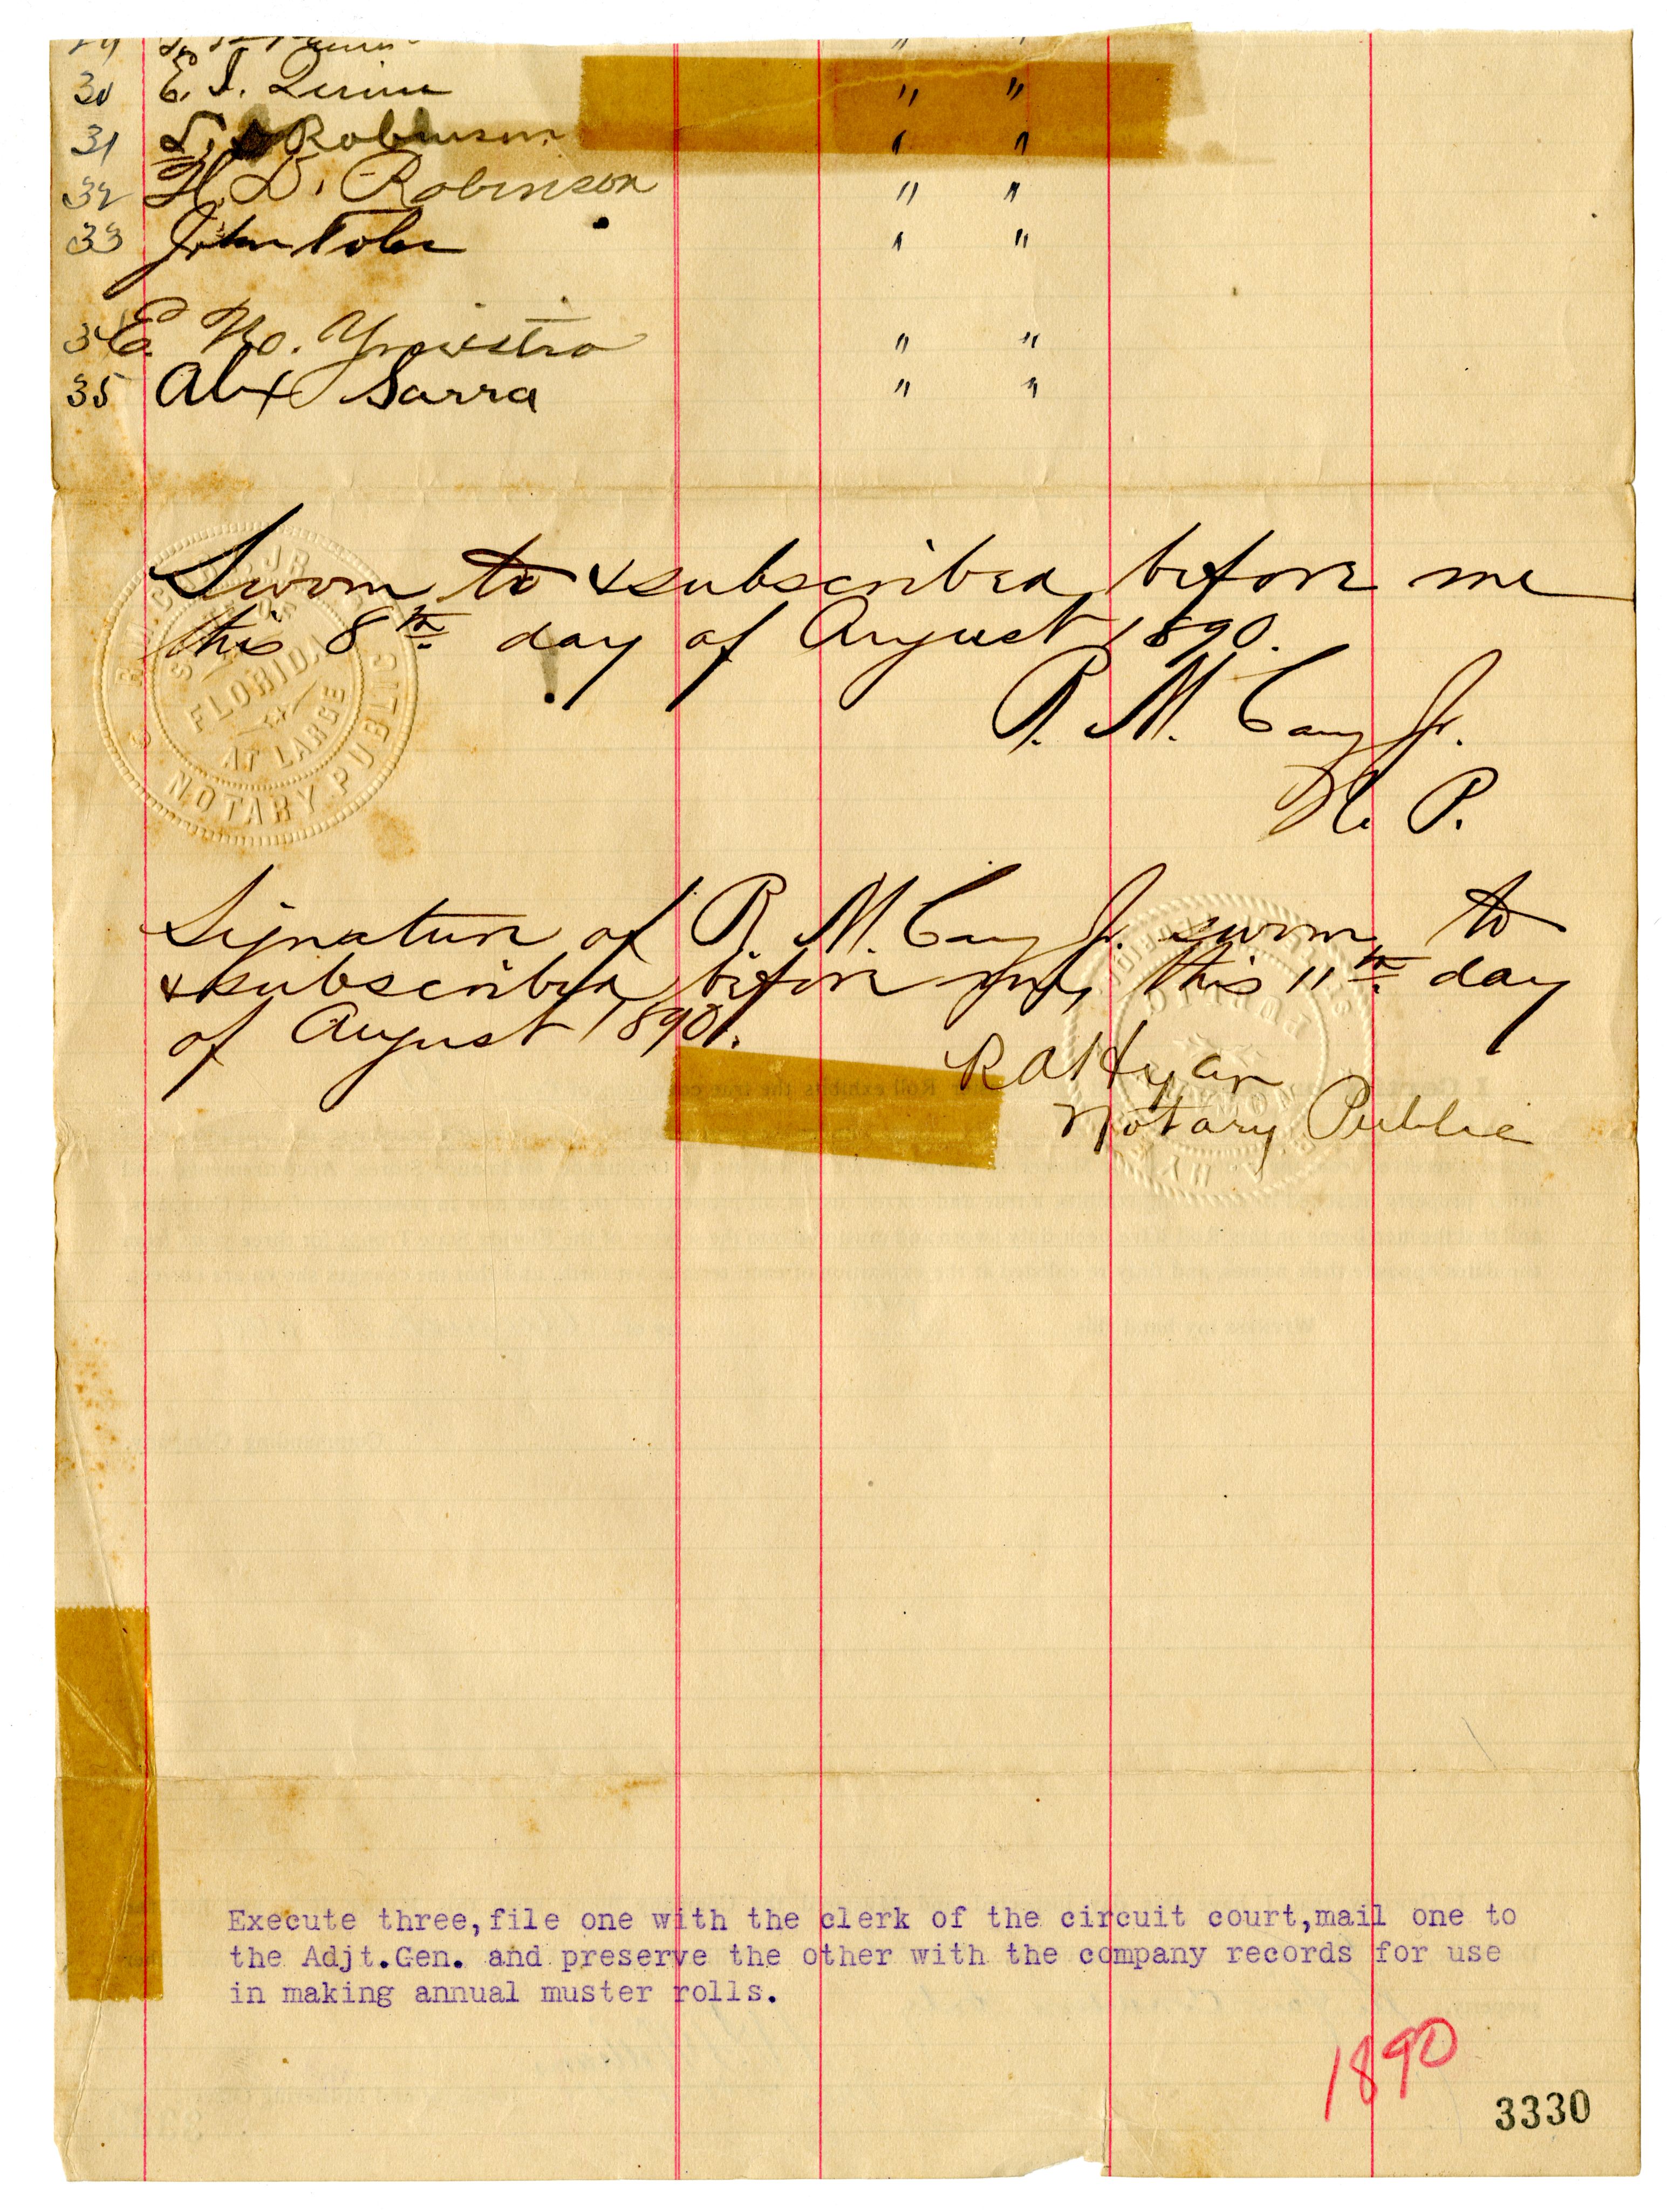 30 E. I. " "
31 L. Robinson " "
32 H. D. Robinson " "
33 John " "
34 E. " "
35 Alex Sarra " "
Sworn to & subscribed before me
this 8th day of August 1890.
R. M. Cary Jr.
N. P.
R. M. CARY JR.
FLORIDA
AT LARGE
NOTARY PUBLIC
Signature of R. M. Cary Jr. sworn to
& subscribed before me, this 11th day
of August 1890.
R A Hyer
Notary Public
Execute three,file one with the clerk of the circuit court,mail one to
the Adjt.Gen. and preserve the other with the company records for use
in making annual muster rolls.
1890
3330